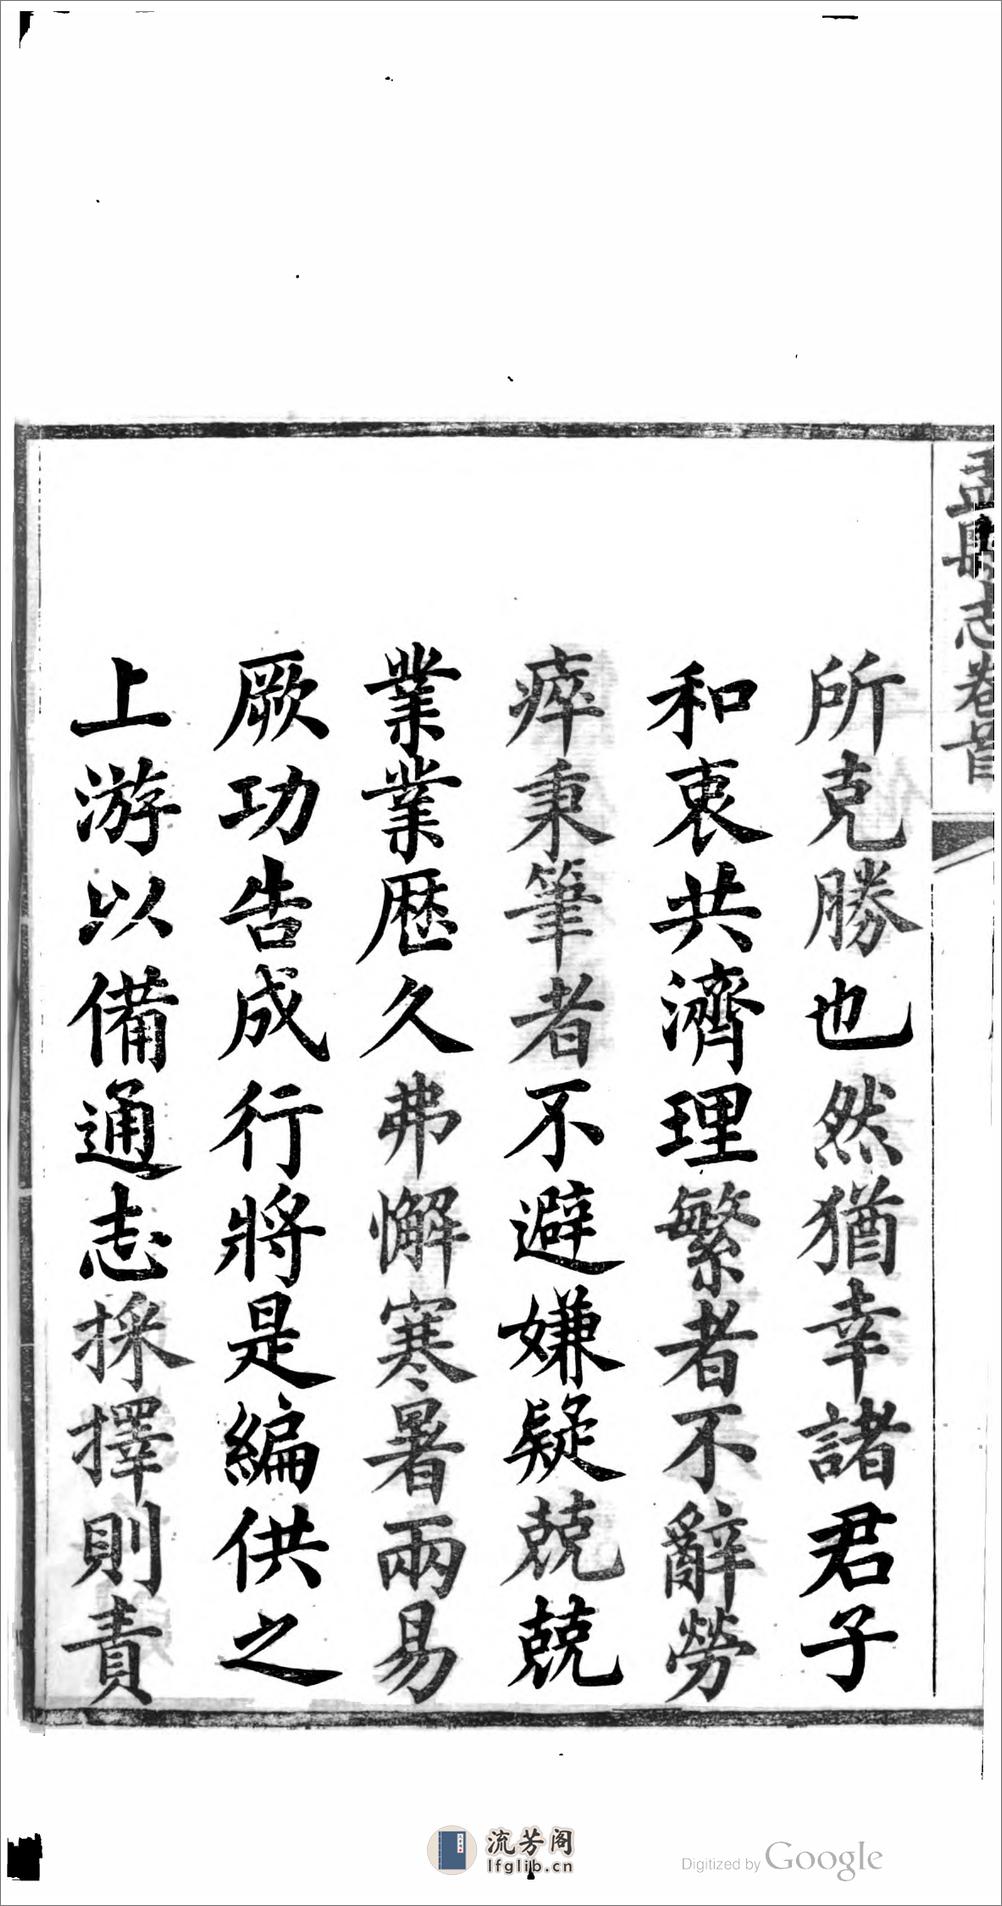 盂縣志卷首
所克勝也然猶幸諸君子
和衷共濟理繁者不辭勞
瘁秉筆者不避嫌疑兢兢
業業歷久弗懈寒暑兩易
厥功告成行將是編供之
上游以備通志採擇則責
流芳阁
lfglib.cn
Digitized by Google